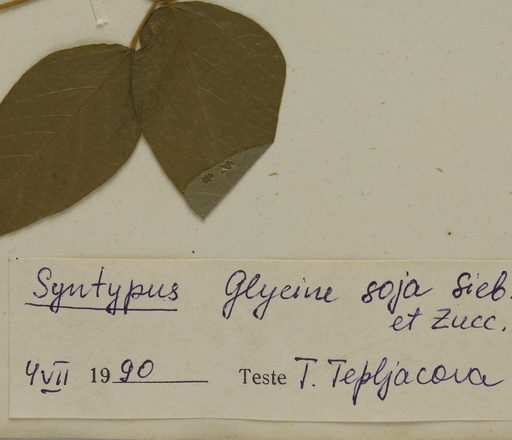 Syntypus Glycine soja Sieb.
et Zucc.
4 VII 1990 Teste T. Tepljacova